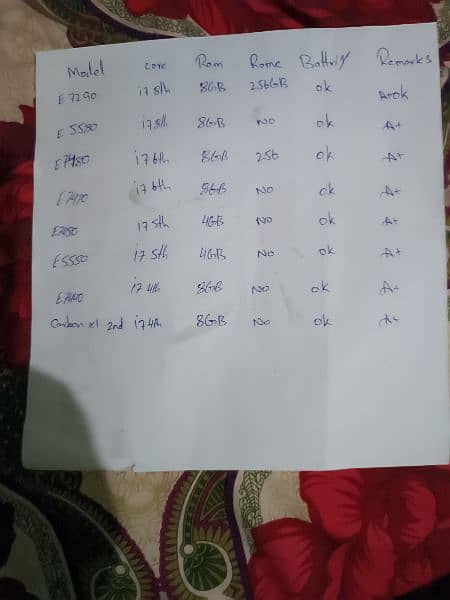 Model core Ram Rome Battriy Remarks
E7290 i7 8th 8GB 256GB ok A+ok
E5580 i7 8th 8GB NO ok A+
E7480 i7 6th 8GB 256 ok A+
E7470 i7 6th 8GB NO ok A+
i7 5th 4GB NO ok A+
E5550 i7 5th 4GB NO ok A+
i7 4th 8GB NO ok A+
Carbon x1 2nd i7 4th 8GB NO ok A+